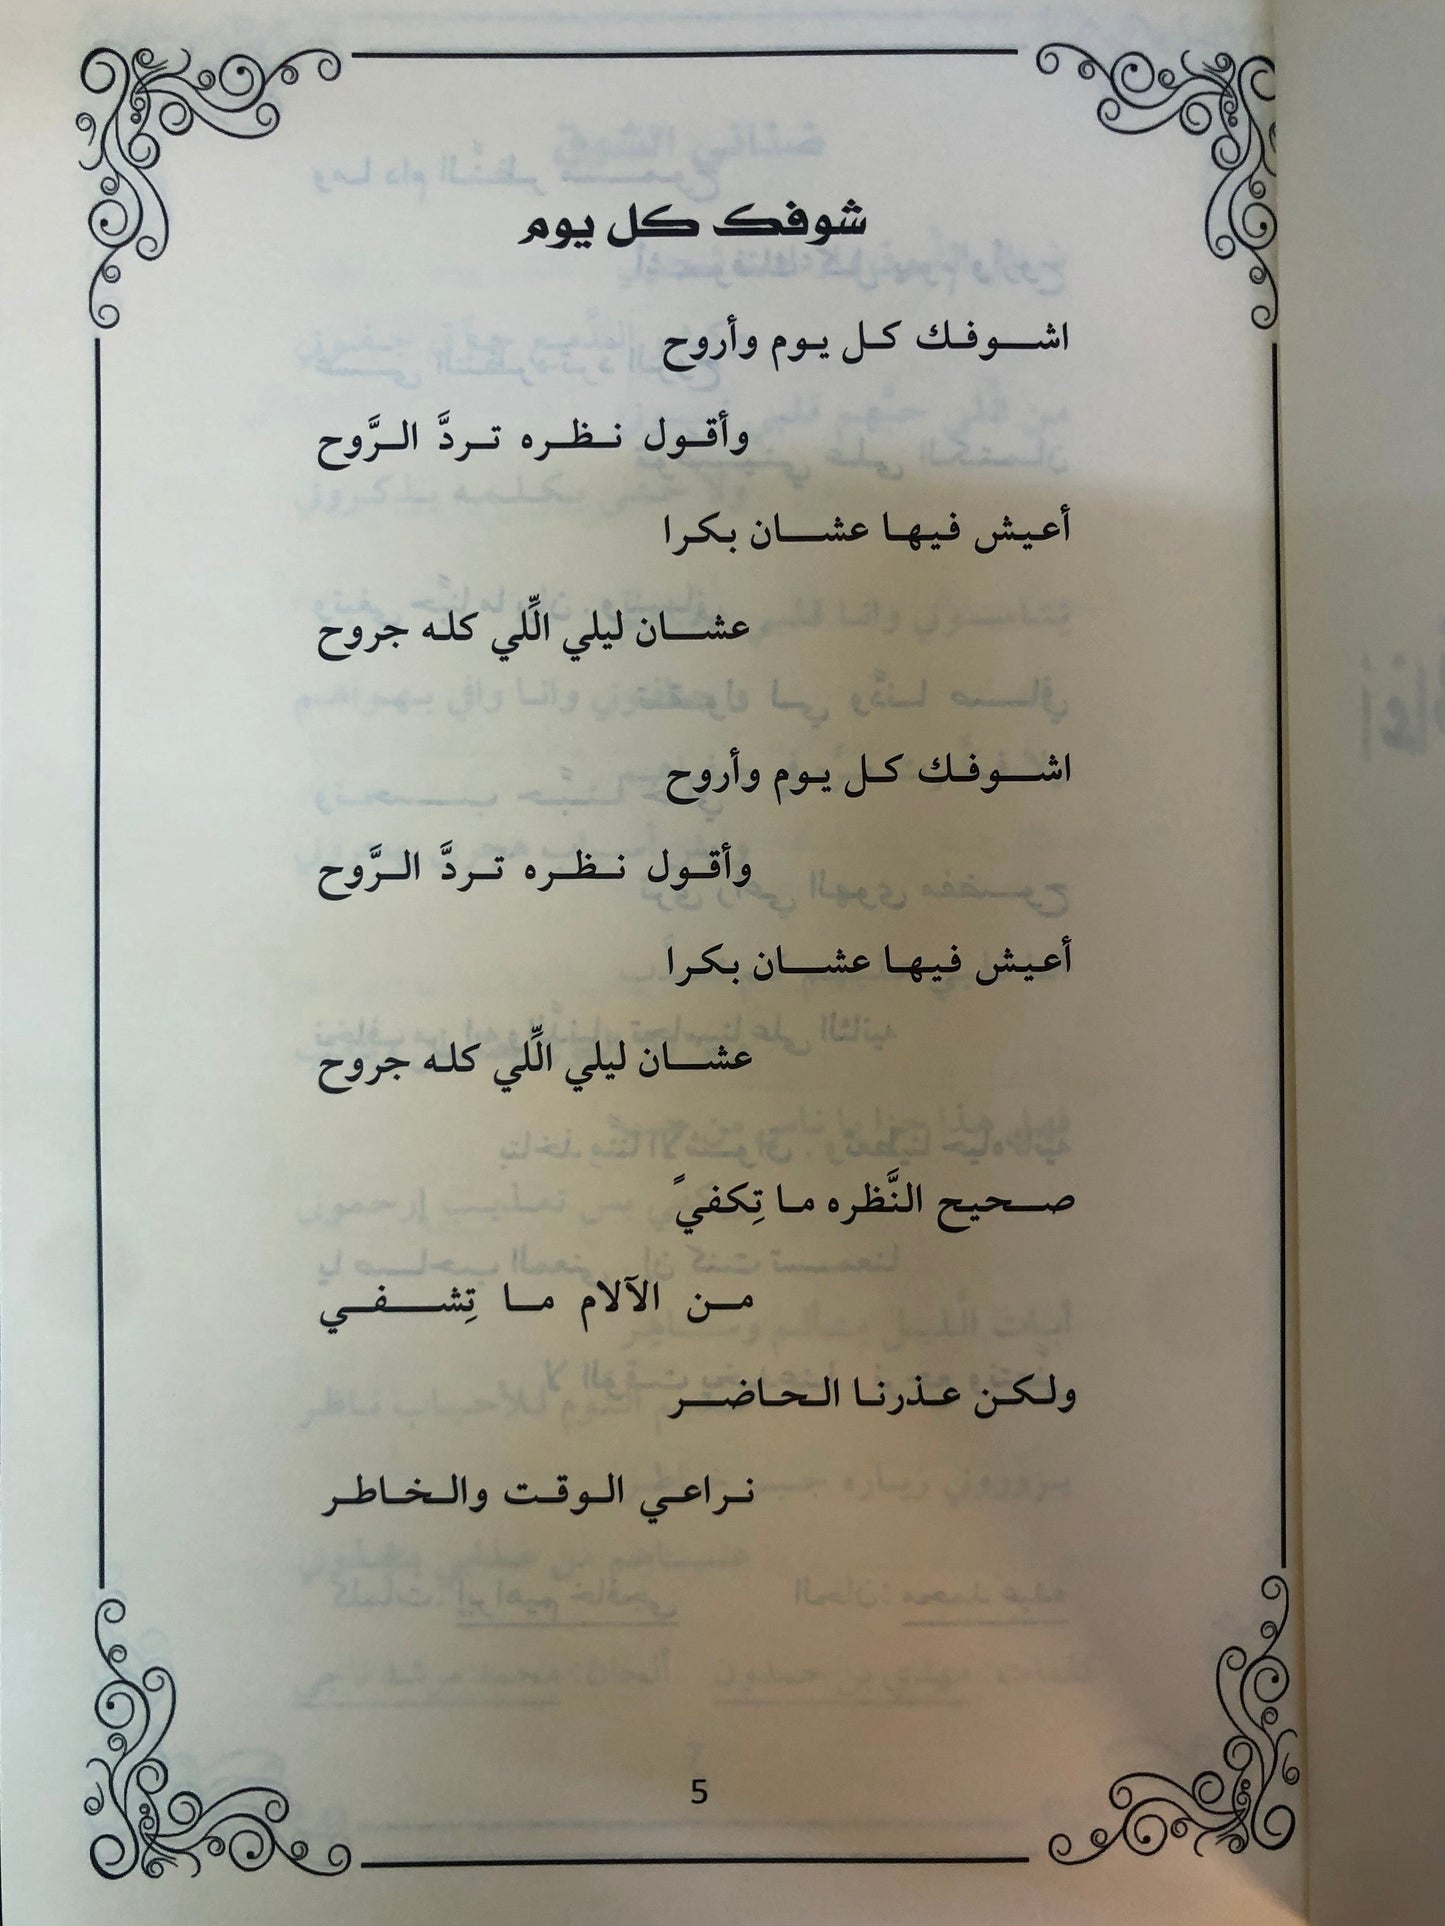 شوفك كل يوم
اشوفك كل يوم وأروح
وأقول نظره تردَّ الرَّوح
أعيش فيها عشان بكرا
عشان ليلي الِّلي كله جروح
اشوفك كل يوم وأروح
وأقول نظره تردَّ الرَّوح
أعيش فيها عشان بكرا
عشان ليلي الِّلي كله جروح
صحيح النَّظره ما تِكفيً
من الآلام ما تِشفي
ولكن عذرنا الحاضر
نراعي الوقت والخاطر
5